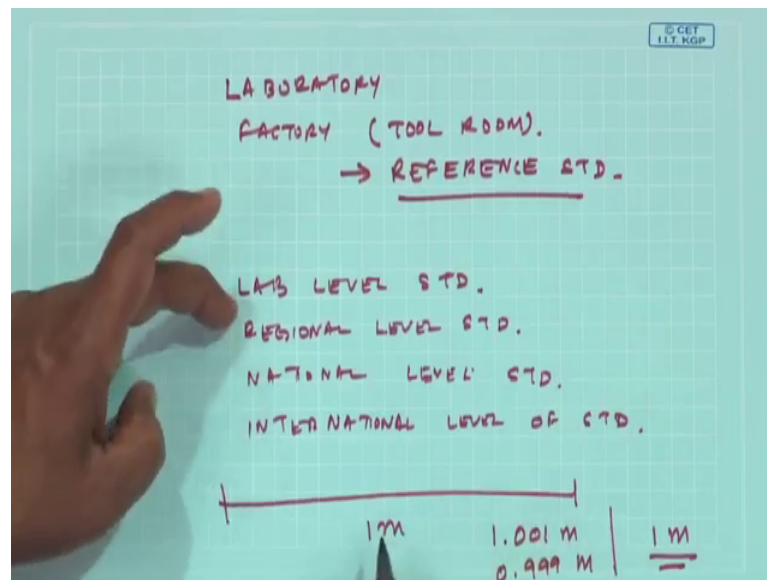 © CET
I.I.T. KGP
LABORATORY
FACTORY (TOOL ROOM).
→ REFERENCE STD.
LAB LEVEL STD.
REGIONAL LEVEL STD.
NATIONAL LEVEL STD.
INTERNATIONAL LEVEL OF STD.
1m 1.001 m 1 m
0.999 m